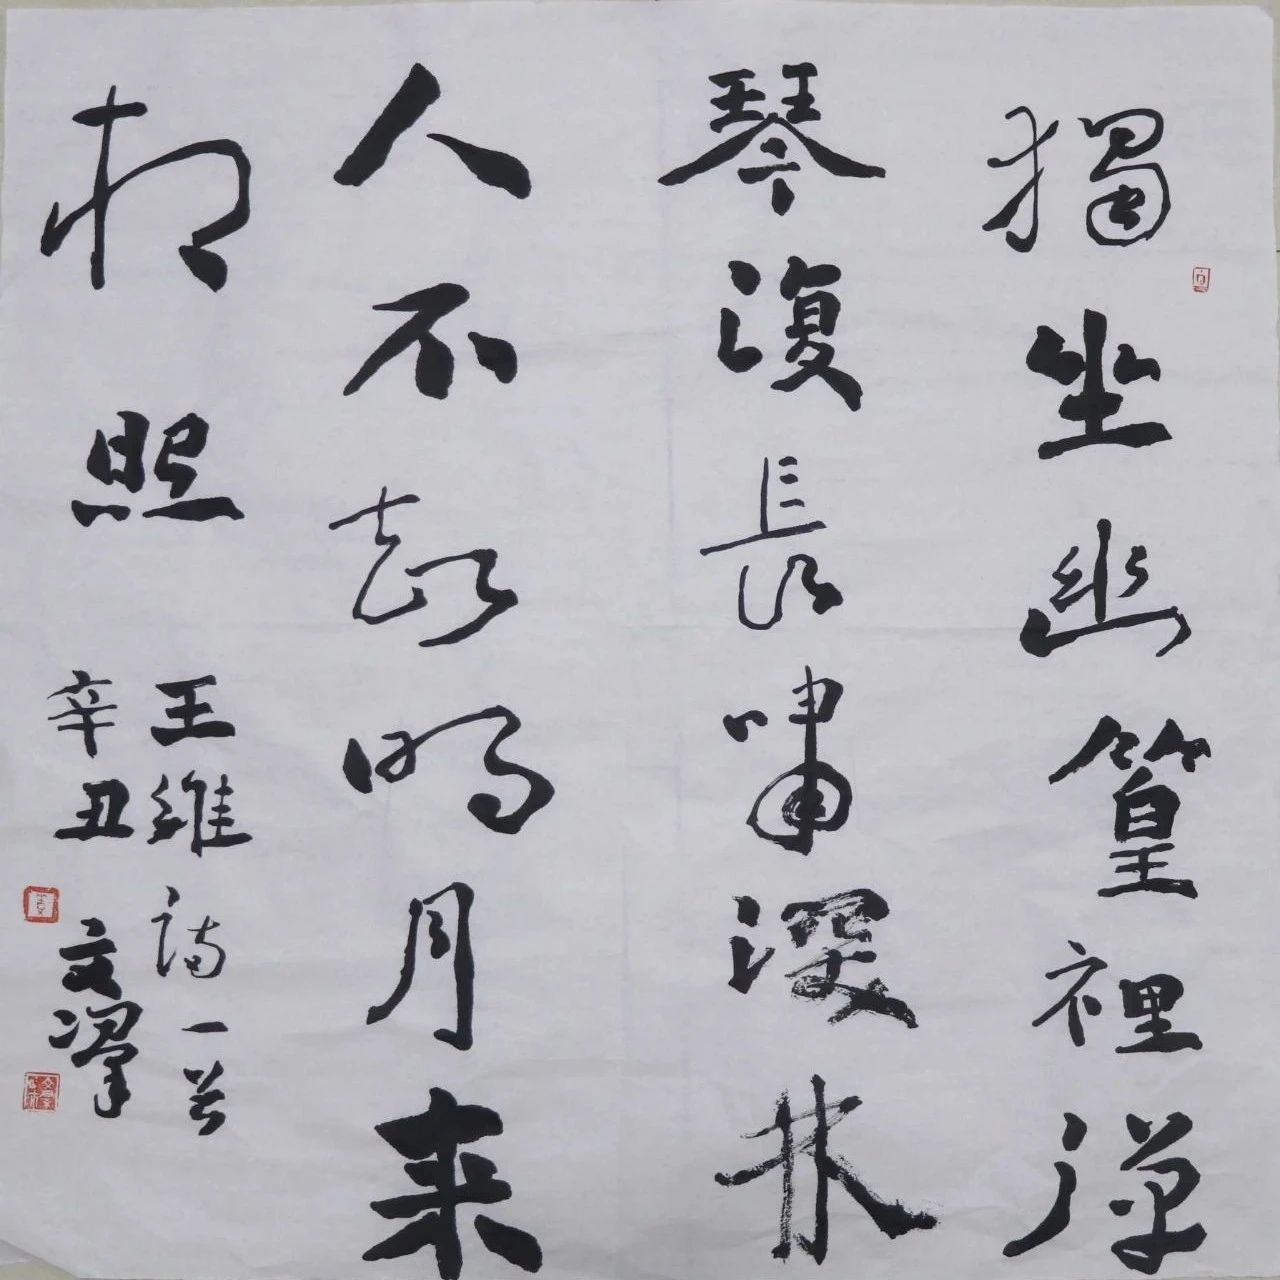 獨坐幽篁裡彈
琴復長嘯深林
人不知明月来
相照
王維詩一首
辛丑 文